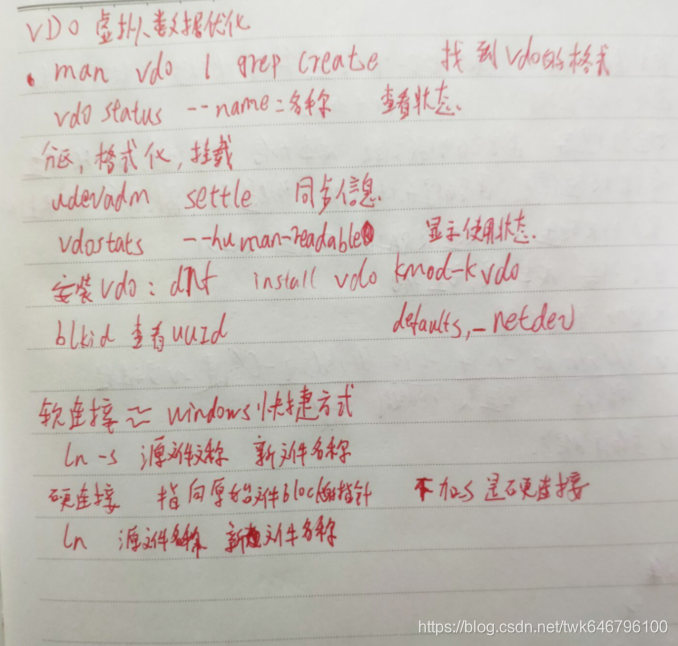 VDO 虚拟数据优化
man vdo | grep create 找到vdo的格式
vdo status --name=名称 查看状态.
分区,格式化,挂载
udevadm settle 同步信息.
vdostats --human-readable 显示使用状态.
安装vdo: dnf install vdo kmod-kvdo
blkid 查看UUId defaults,_netdev
软连接 ≈ windows快捷方式
ln -s 源文件名称 新文件名称
硬连接 指向原始文件block的指针 不加s是硬连接
ln 源文件名称 新文件名称
https://blog.csdn.net/twk646796100